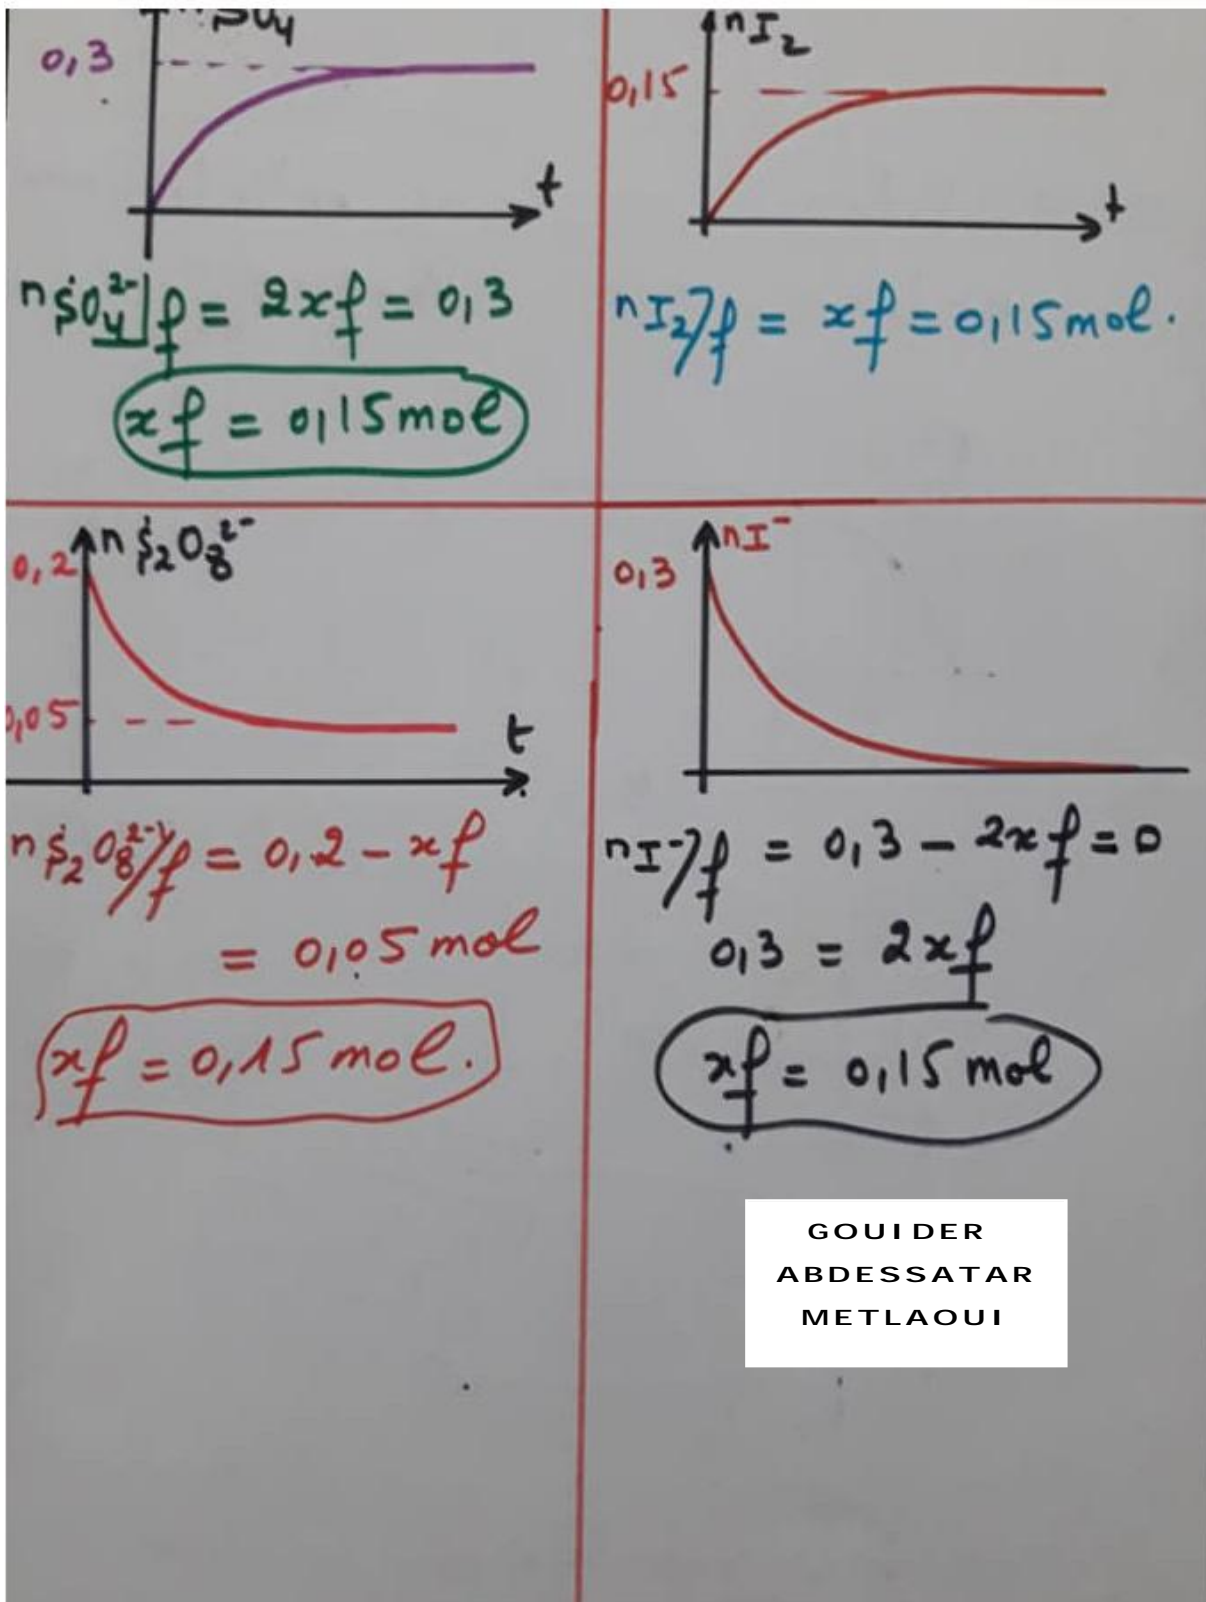 n SO4
0,3
t
nSO4^2-]f = 2xf = 0,3
xf = 0,15 mol
nI2
0,15
t
nI2/f = xf = 0,15 mol.
n S2O8^2-
0,2
0,05
t
nS2O8^2-/f = 0,2 - xf
= 0,05 mol
xf = 0,15 mol.
nI-
0,3
nI-/f = 0,3 - 2xf = 0
0,3 = 2xf
xf = 0,15 mol
GOUIDER
ABDESSATAR
METLAOUI